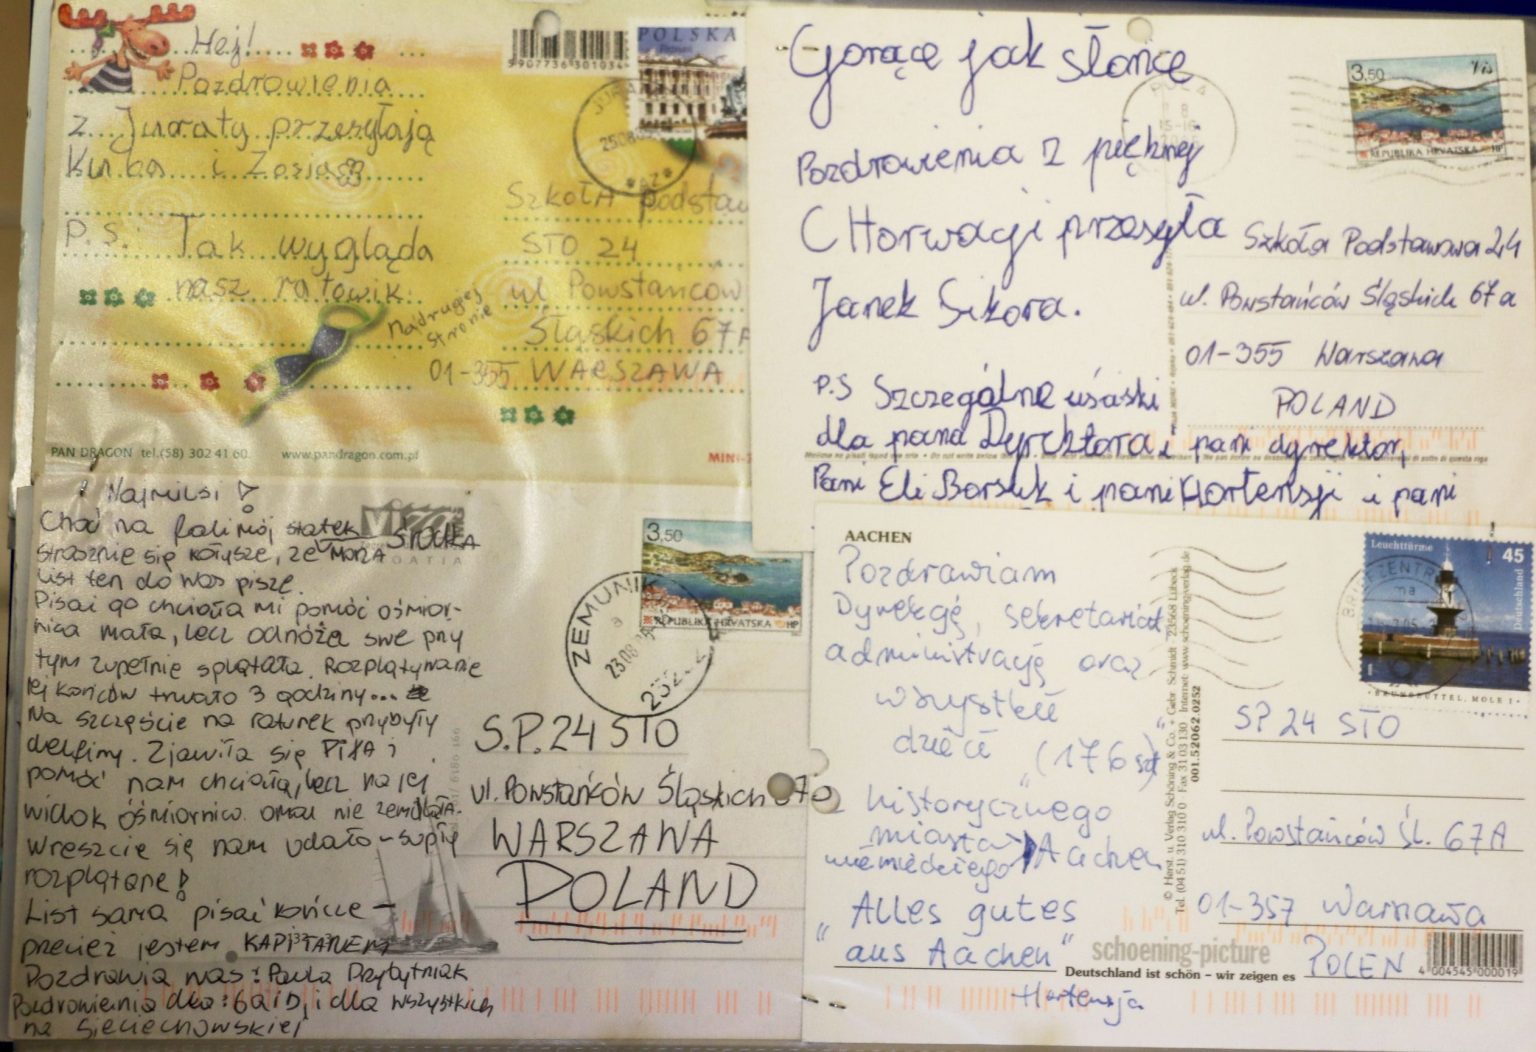 Hej!
Pozdrowienia
z Juraty przesyłają
Kuba i Zosia
P.S. Tak wygląda
nasz ratowik
Na drugiej
stronie
5907736301034
POLSKA
Poznań
25.08
Szkoła podstaw
STO 24
ul Powstańców
Śląskich 67A
01-355 WARSZAWA
PAN DRAGON tel.(58) 302 41 60 www.pandragon.com.pl
MINI-
Gorące jak słońce
Pozdrowienia z pięknej
CHorwacji przesyła
Janek Sikora.
P.S Szczególne uśiski
dla pana Dyrektora i pani dyrektor,
Pani Eli Borsuk i pani Hortensji i pani
PULA
3,50 Vis
REPUBLIKA HRVATSKA HP
Szkoła Podstawowa 24
ul. Powstańców Śląskich 67a
01-355 Warszawa
POLAND
Najmilsi!
Choć na fali mój statek
strasznie się kołysze, ze MORZA ŚRODKA
list ten do was piszę.
Pisać go chciała mi pomóc ośmior-
nica mała, lecz odnóża swe przy
tym zupełnie splątała. Rozplątywanie
jej końców trwało 3 godziny...
Na szczęście na ratunek przybyły
delfiny. Zjawiła się PIŁA i
pomóc nam chciała, lecz na jej
widok ośmiornica omal nie zemdlała.
Wreszcie się nam udało - supły
rozplątane!
List sama pisać kończę -
przecież jestem KAPITANEM
Pozdrawia was: Paula Przybytniak
Pozdrowienia dla: 6a i D, i dla wszystkich
na Sieciechowskiej
CROATIA
3,50
REPUBLIKA HRVATSKA HP
ZEMUNIK
23.08
S.P. 24 STO
ul. Powstańców Śląskich 67a
WARSZAWA
POLAND
AACHEN
Pozdrawiam
Dyrekcję, sekretariat
administrację oraz
wszystkie
dzieci (176 szt)
z historycznego
miasta
niemieckiego Aachen
"Alles gutes
aus Aachen"
Hortensja
© Horst. u. Verlag Schöning & Co. + Gebr. Schmidt 23568 Lübeck
Tel. (04 51) 310 310 0 Fax 31 03 130 Internet: www.schoening-verlag.de
001.52062.0252
Leuchttürme 45
Deutschland
BRUNSBÜTTEL, MOLE 1
BRIEFZENTR
SP 24 STO
ul. Powstańców Śl. 67A
01-357 Warszawa
POLEN
schoening-picture
Deutschland ist schön - wir zeigen es
4 004545 000019